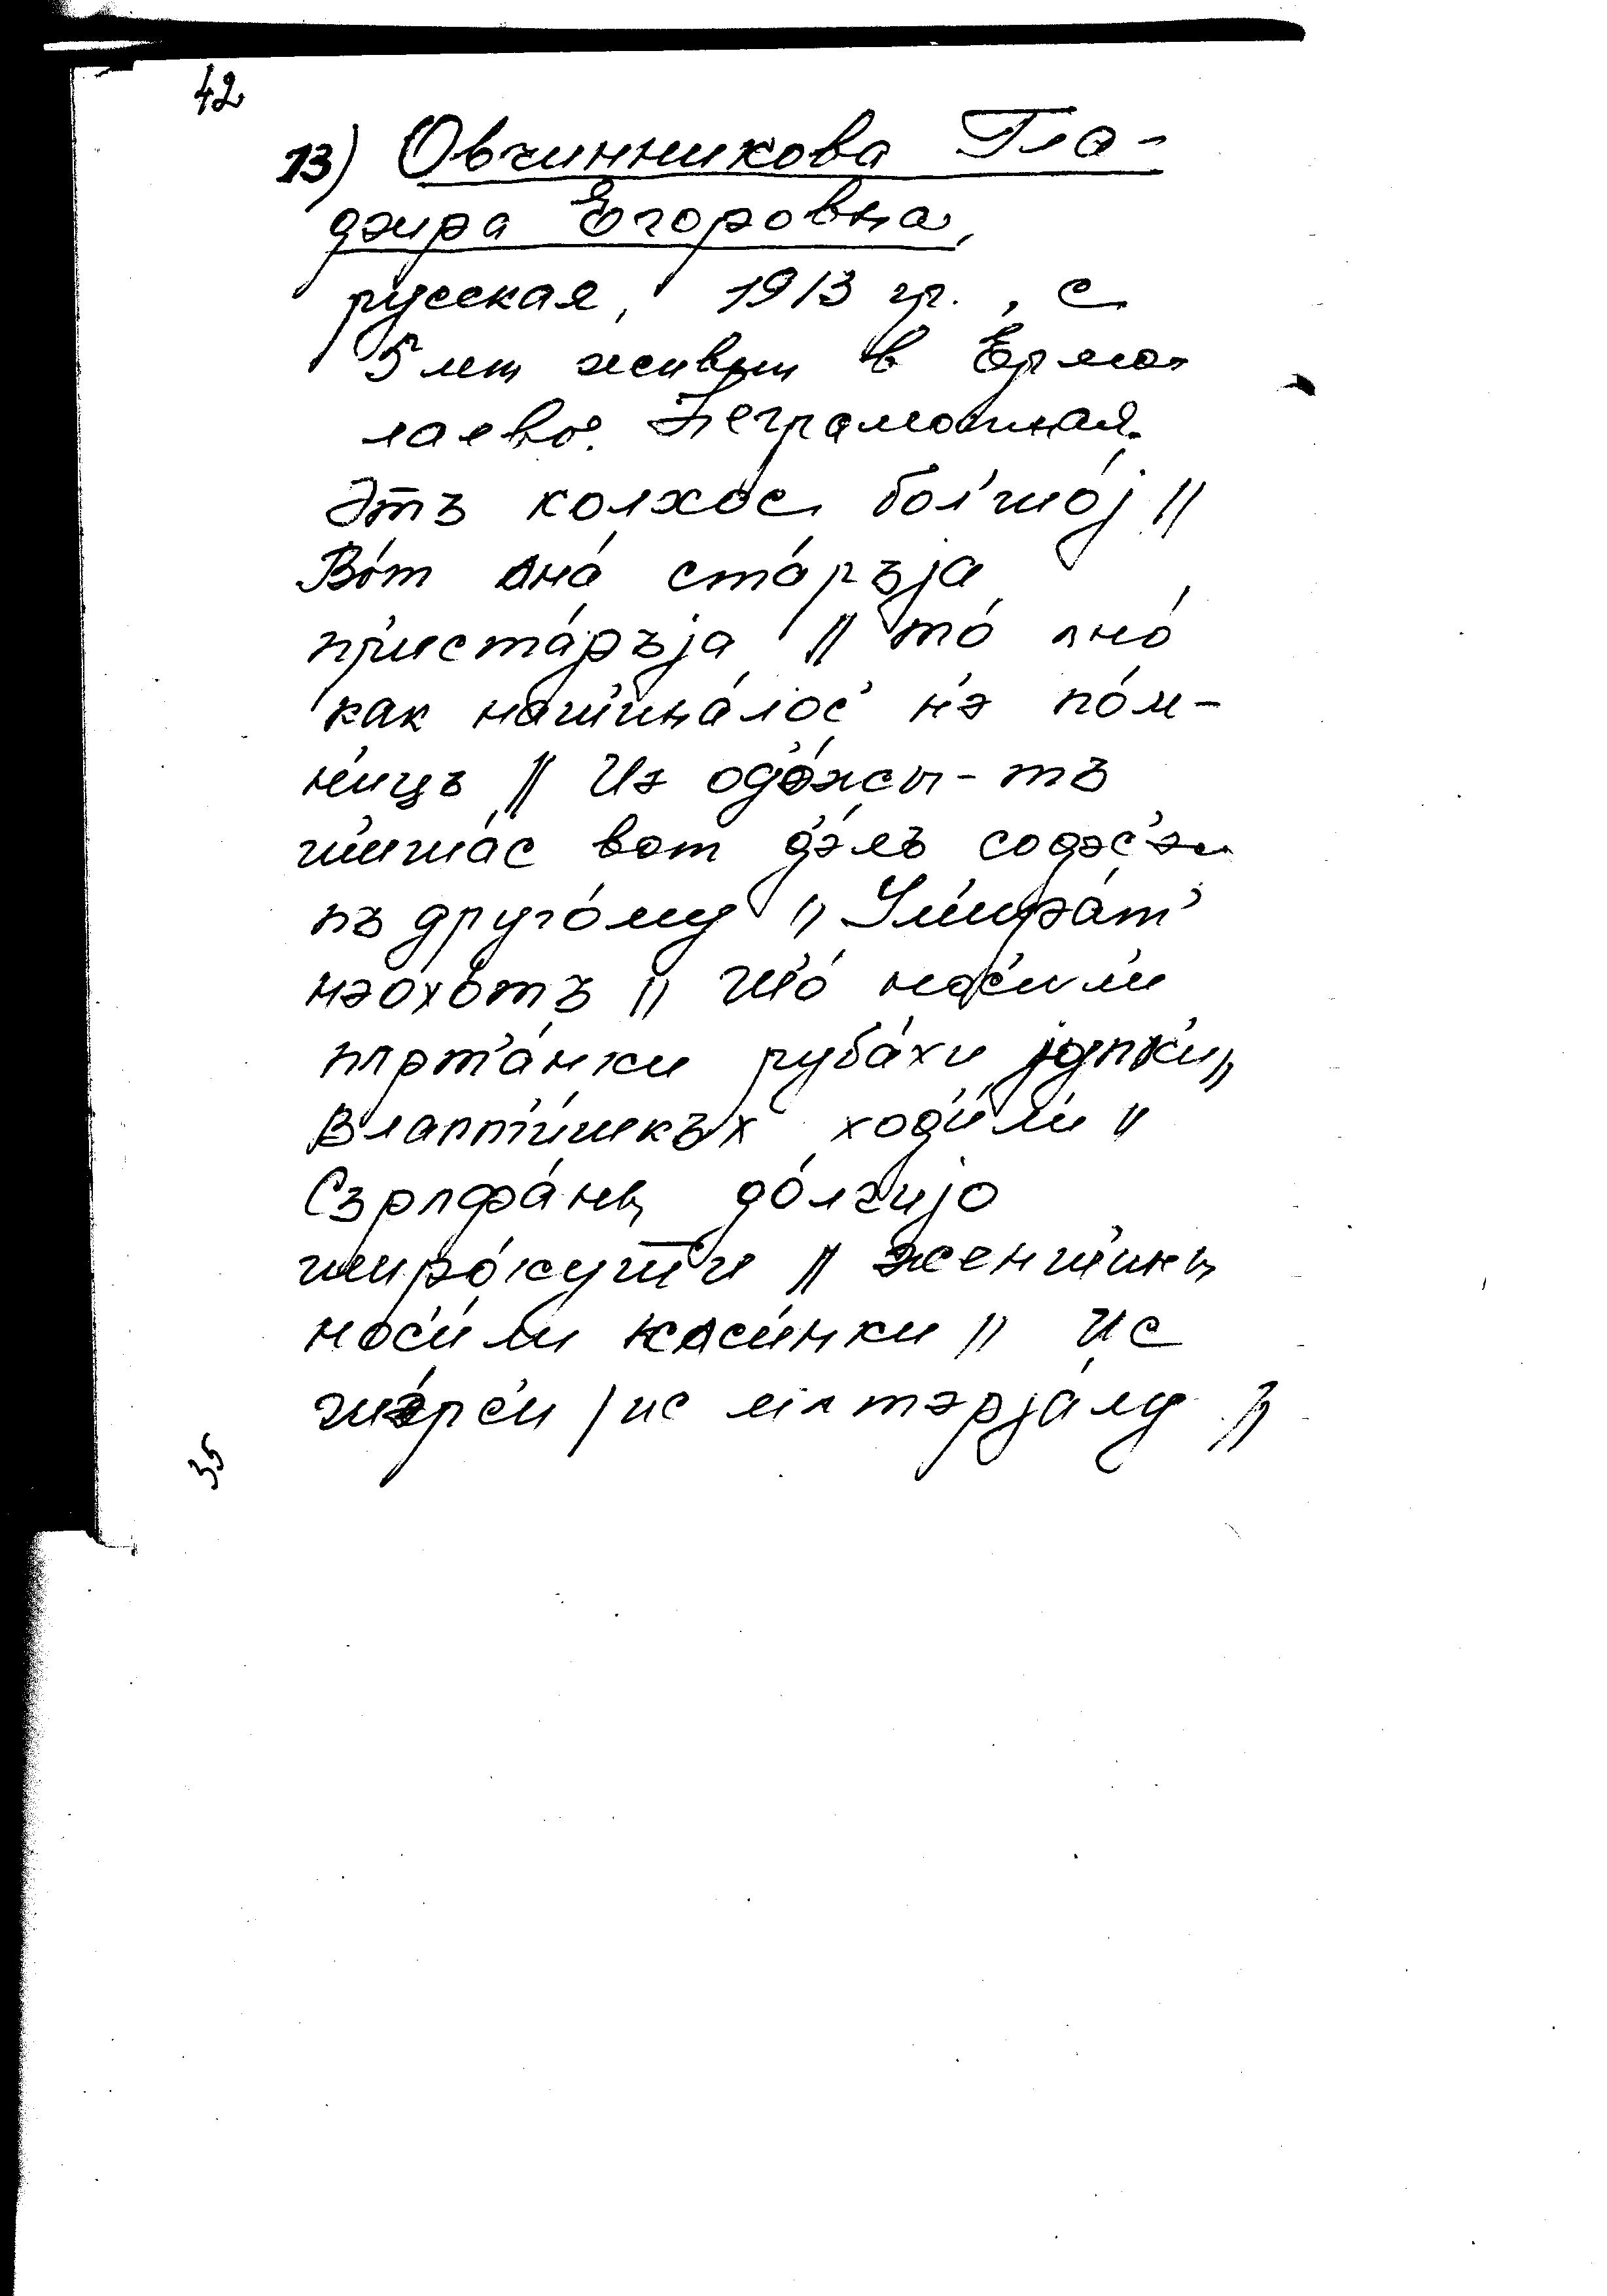 42
13) Овчинникова Гла-
дзира Егоровна,
русская, 1913 гр., с
5 лет живёт в Ермо-
лаево. Неграмотная.
Э́тъ колхос бол'шо́j //
Во́т ʌна́ ста́ръjа
п'риста́ръjа // то́ ʌно́
как нач'ина́лос' н'э по́м-
н'ицъ // Из од'о́жы-тъ
ш'ич'а́с вот д'э́лъ
пъ друго́му // Ум'ира́т'
нэохо́тъ // Ч'о́ нос'ил'и
пʌрт'а́нки руба́хи jу́пк'и //
В лапт'и́шкъх ход'и́л'и //
Сърʌфа́ны до́лгиjо
широ́кущ'и // женщ'ины
нос'и́ли кʌси́нки // Ис
шэ́рс'и / ис мʌтэрjа́лу //
35